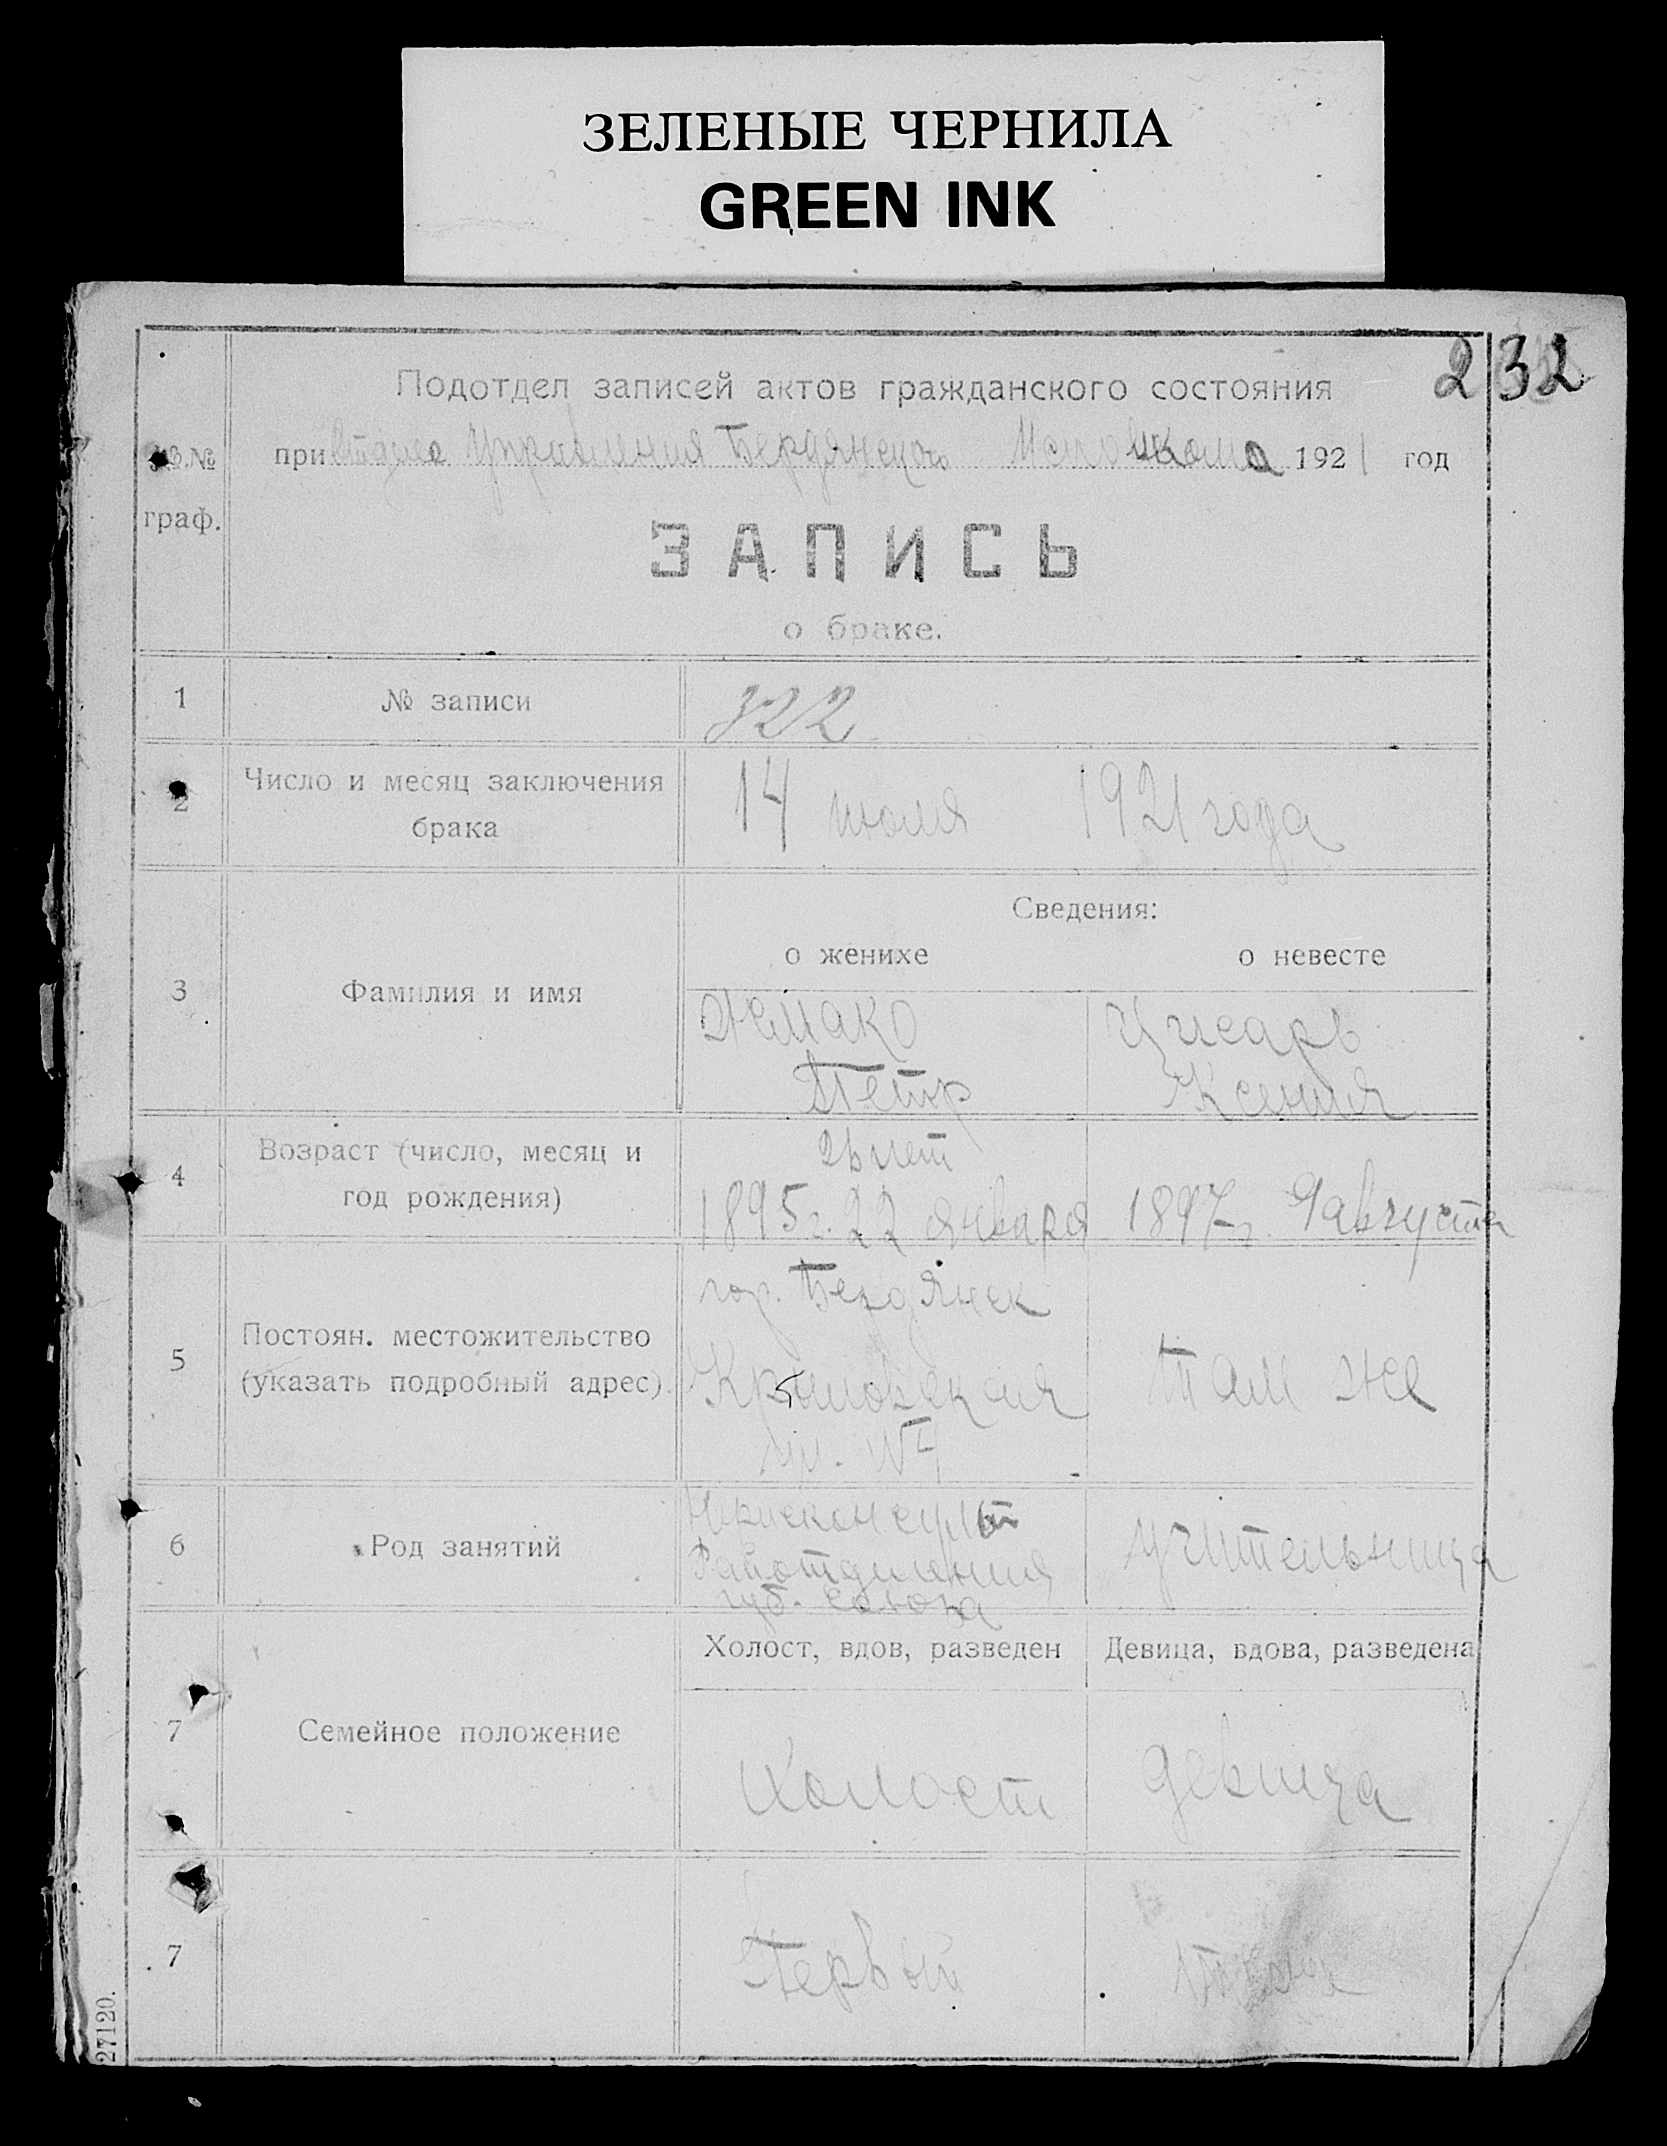 ЗЕЛЕНЫЕ ЧЕРНИЛА
GREEN INK
232
Подотдел записей актов гражданского состояния
№.№ граф.
при отделе Управления Бердянского 1921 год
ЗАПИСЬ
о браке.
1 № записи 322
2 Число и месяц заключения брака 14 июля 1921 года
Сведения:
о женихе о невесте
3 Фамилия и имя
Петр Ксения
4 Возраст (число, месяц и год рождения)
26 лет
1895 г. 22 января 1897 г. 9 августа
5 Постоян. местожительство (указать подробный адрес)
гор. Бердянск
там же
6 Род занятий
Юрисконсульт учительница
губ. союза
Холост, вдов, разведен Девица, вдова, разведена
7 Семейное положение
Холост девица
7 Первый
27120.